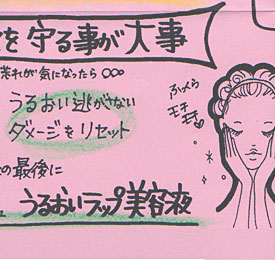 を守る事が大事
荒れが気になったら○○○
うるおい逃がさない
ダメージをリセット
ふっくら
モチ
モチ
の最後に
うるおいラップ美容液